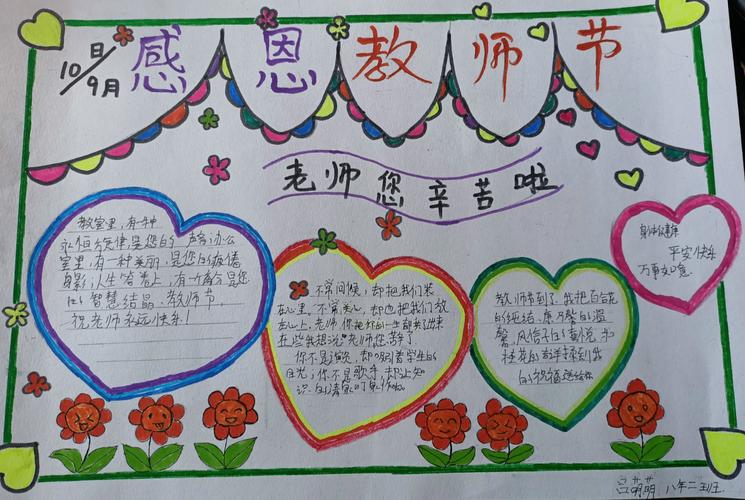 感恩教师节
10日/9月
老师您辛苦啦
教室里,有一种
永恒旋律是您的声音;办公
室里,有一种美丽,是您的疲倦
身影;人生答卷上,有一份满分是您
的智慧结晶。教师节
祝老师永远快乐!
不常问候,却把我们装
在心里,不常关心,却也把我们放
在心上,老师,你把
些我想说"老师,您
你不是演员,却吸引着学生的
目光;你不是歌手,却让知
识的清泉叮
教师节到了,我把百合花
的纯洁、康乃馨的温
馨、风信子的喜悦、
桂花的
的祝福送给你
身体健康
平安快乐
万事如意
吕萌萌 八年二班